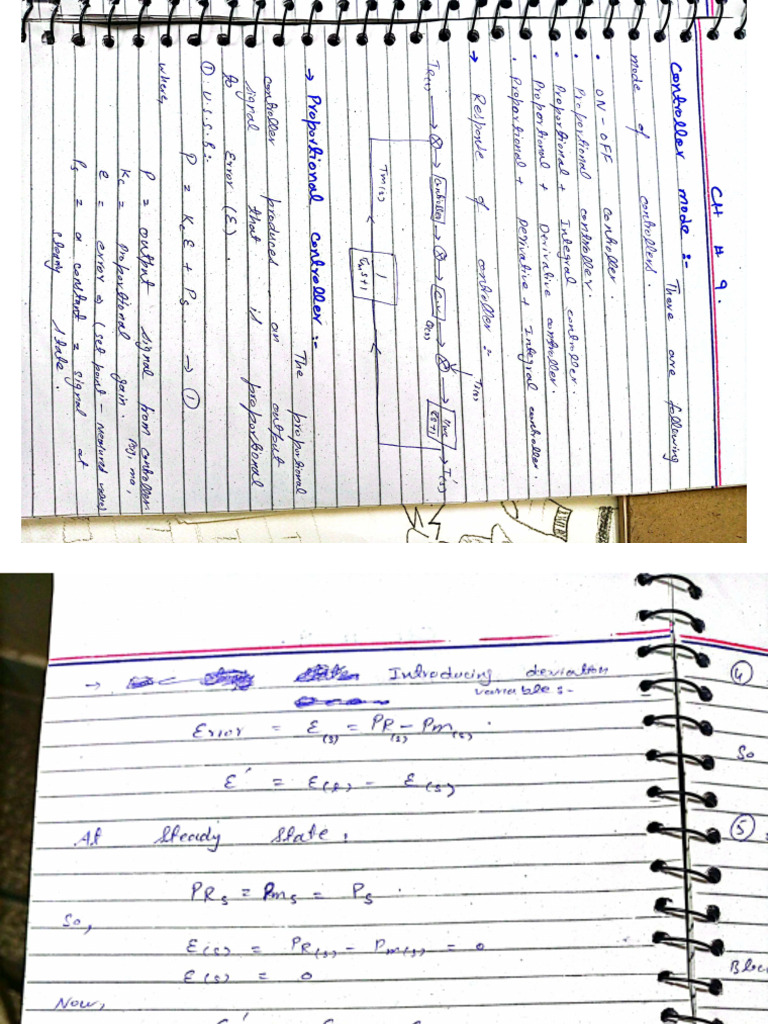 CH # 9.
Controller mode :- There are following
mode of controllers.
• ON - OFF controller.
• Proportional controller.
• Proportional + Integral controller.
• Proportional + Derivative controller.
• Proportional + Derivative + Integral controller.
→ Response of controller :-
TR(s) → ⊗ → controller → ⊗ → → ⊗ → → T'(s)
Ts(s)
Tm(s)
1
τms+1
→ Proportional controller :- The proportional
controller produces an output
signal that is proportional
to Error (ε).
① U.S.S.B :-
P = Kc ε + Ps → ①
where,
P = output signal from controller
Kc = Proportional gain.
e = error = (set point - measured value)
Ps = a constant = signal at
steady state.
→ Introducing deviation
variable :-
Error = ε(s) = PR(s) - Pm(s) .
ε' = ε(s) - ε(s)
At steady state :
PRs = Pms = Ps .
So,
ε(s) = PR(s) - Pm(s) = 0
ε(s) = 0
Now,
④
So
⑤